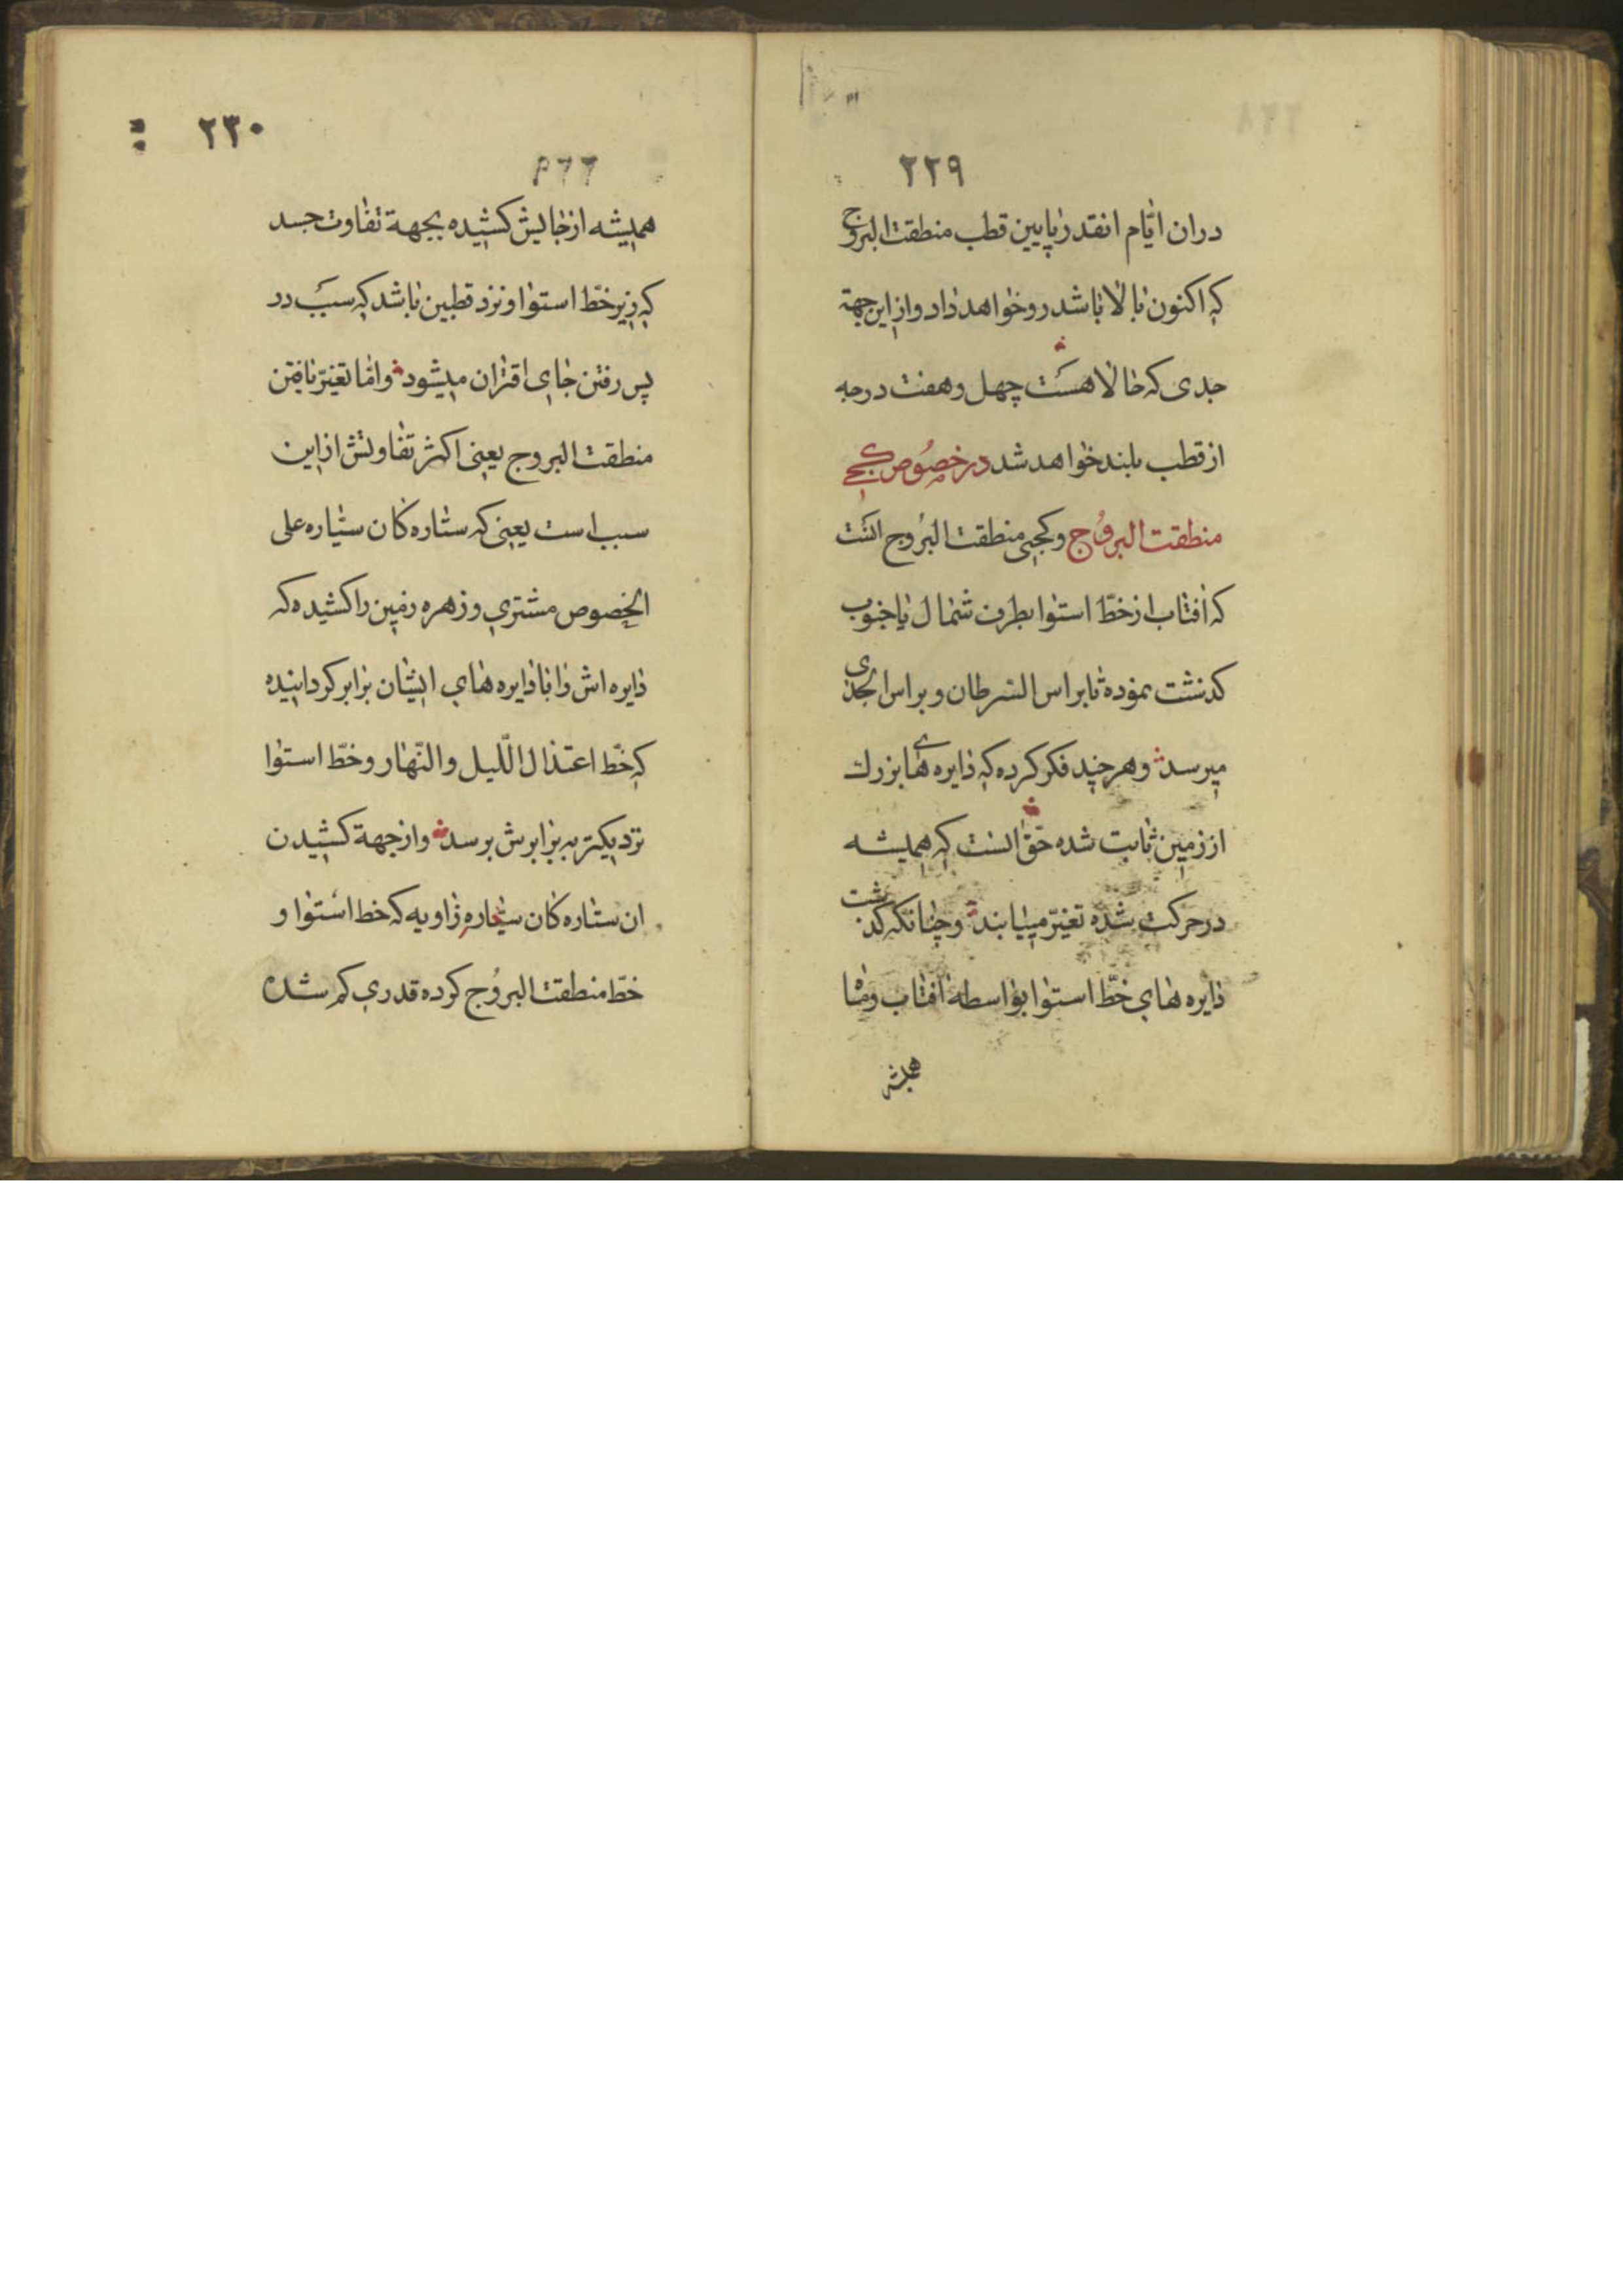 ٢٢٩
دران ایّام انقدر پایین قطب منطقت البروج
که اکنون بالا باشد رو خواهد داد و از این جهة
جدی که حالا هست چهل و هفت درجه
از قطب بلند خواهد شد در خصوص کجی
منطقت البروج و کجیی منطقت البروج انست
که افتاب از خطّ استوا بطرف شمال یا جنوب
کدشت نموده تا براس السرطان و براس الجدی
میرسد و هر چند فکر کرده که دایره های بزرك
از زمین ثابت شده حقّ انست که همیشه
در حرکت شده تغیّر مییابند و چنانکه کدشت
دایره های خطّ استوا بواسطه افتاب و ماه
همیشه
٢٣٠
همیشه از جایش کشیده بجهة تفاوت جسد
که زیر خطّ استوا و نزد قطبین باشد که سبب در
پس رفتن جای اقتران میشود و امّا تغیّر یافتن
منطقت البروج یعنی اکثر تفاوتش از این
سبب است یعنی که ستاره کان سیّاره علی
الخصوص مشتری و زهره زمین را کشیده که
دایره اش را با دایره های ایشان برابر کردانیده
که خطّ اعتدال اللّیل والنّهار و خطّ استوا
نزدیکتر به برابرش برسد و از جهة کشیدن
ان ستاره کان سیّاره زاویه که خط استوا و
خطّ منطقت البروج کرده قدری کم شده